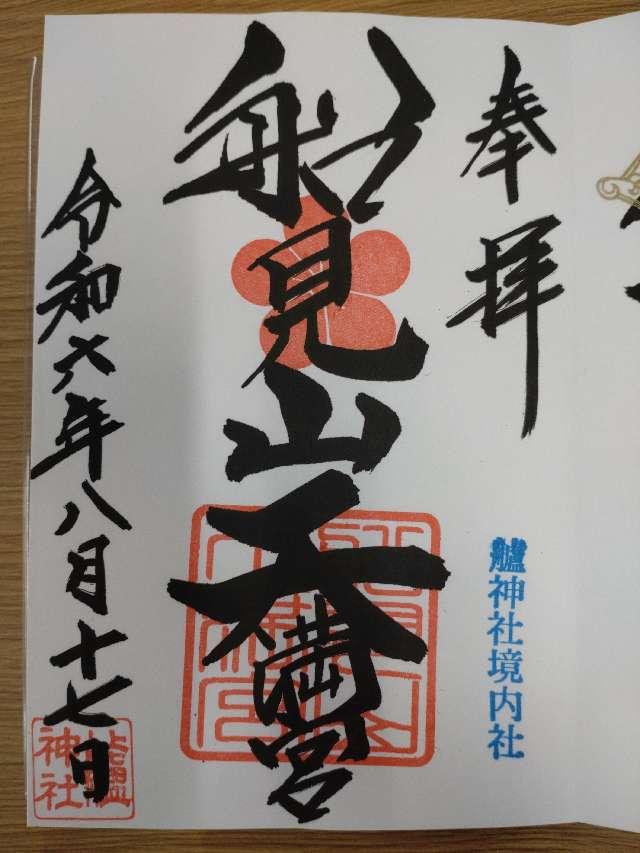 奉拝
艫神社境内社
船見山天満宮
令和六年八月十七日
艫神社